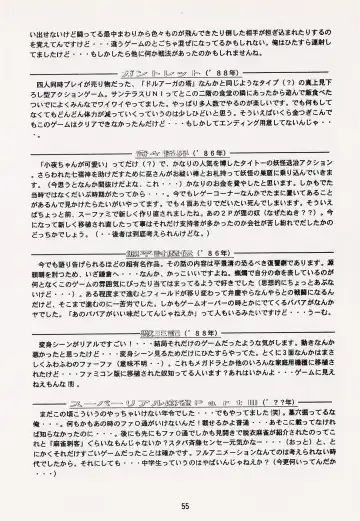 い出せないけど闘ってる最中まわりから色々ものが飛んできたり倒した相手が担ぎ込まれたりするの
を覚えてんですけど・・・違うゲームのとごちゃ混ぜになってるかもしれない。俺はひたすら連射し
てましたけど・・・もしかしたら他に何か戦法があったのかもしれませんね。
ガントレット('８８年)
四人同時プレイが売りだった、「ドルアーガの塔」なんかと同じようなタイプ(？)の真上見下
ろし型アクションゲーム。サンテラスＵＮＩってとこの二階の食堂の隣にあったから遊んで飯食べた
ついでによくみんなでワイワイやってました。やっぱり多人数でやるのが楽しいです。でも何もして
なくてもどんどん体力が減っていくっていうのは少しひどいと思う。そういえばいくら金つぎこんで
もこのゲームはクリアできなかったんだけど・・・もしかしてエンディング用意してないんじゃ・・
・。
奇々怪界('８６年)
「小夜ちゃんが可愛い」ってだけ(？)で、かなりの人気を博したタイトーの妖怪退治アクション
。さらわれた七福神を助けだすためにお祓い棒とお札持って妖怪の巣窟に乗り込んでいきま
す。(今思うとなんか間抜けだよな、これ・・・)かなりのお金を費やしたと思います。しかもでた
当時ではなくだいぶ時期がたってから・・・。今でもレゲーコーナーなんかでたまに置いてあるこ
とがあるんで見かけたらたいがいやってます。でも４面あたりでだいたい死んでしまいます。そういえ
ばちょっと前、スーファミで新しく作り直されましたね。あの２Ｐが狸の奴(なぜたぬき？？)。今
になって新しく移植され直したって事はそれだけ支持者が多かったのか会社が苦し紛れでだしたかの
どっちかでしょう。(・・後者は到底考えられんけどな。)
源平討魔伝('８６年)
今でも語り告げられるほどの超有名作品。その話の内容は平景清の恐るべき復讐劇であります。源
頼朝を討つため、いざ鎌倉へ・・・なんか、かっこいいですよね。蝋燭で自分の命を表しているのが
何となくこのゲームの雰囲気にぴったり当てはまってるようで好きでした(思想的にちょっとあぶな
いけど・・・)。ある程度まで進むとフィールドが移り変わって弁慶やらなんやらとの戦闘になるん
だけど、そこまで進むのに一苦労でした。しかもゲームオーバーの時とかにでてくるババアがなんと
も・・・「あのババアがいい味だしてんじゃねえか」って人もいるみたいですけど・・・うーむ。
獣王記('８８年)
変身シーンがリアルですごい！・・・結局それだけのゲームだったような気がします。動きなんか
悪かったと思ったけど・・・変身シーンを見るためだけにひたすらやってた。とくに３面なんかはまさ
しくふわふわのファーフィア(意味不明・・・)でよかったです。これもメガドラとか他のいろんな家庭用機種に移植され
てたけど・・・ファミコン版に移植された奴知ってる人います？あれはいかんよ・・・ゲームに見え
ませんもんな 雨。
スーパーリアル麻雀ＰａｒｔⅢ('？？年)
まだこの頃こういうのやっちゃいけない年令でした・・・でもやってました(笑)。墓穴掘ってるな
俺・・・。何もかもあの時のファ○通がいけないんだ！載せるかよ普通・・・あそこに載ってなけれ
ば知らなかったのに・・・。後にも先にもファ○通でしかも見開きで脱衣麻雀が紹介されたのってこれと
「麻雀刺客」ぐらいなもんじゃないか？スタパ斎藤センセー元気かなー・・・(おっと)と、と
にかくそれだけすごいゲームだったことは確かです。フルアニメーションなんてのは考えられない時
代でしたから。それにしても・・・中学生っていうのはやばいんじゃねえか？(今更何いってんだか
・・・)
55